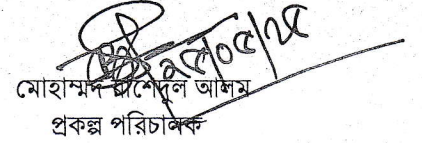 ২৮/০৫/২৫
মোহাম্মদ রাশেদুল আলম
প্রকল্প পরিচালক